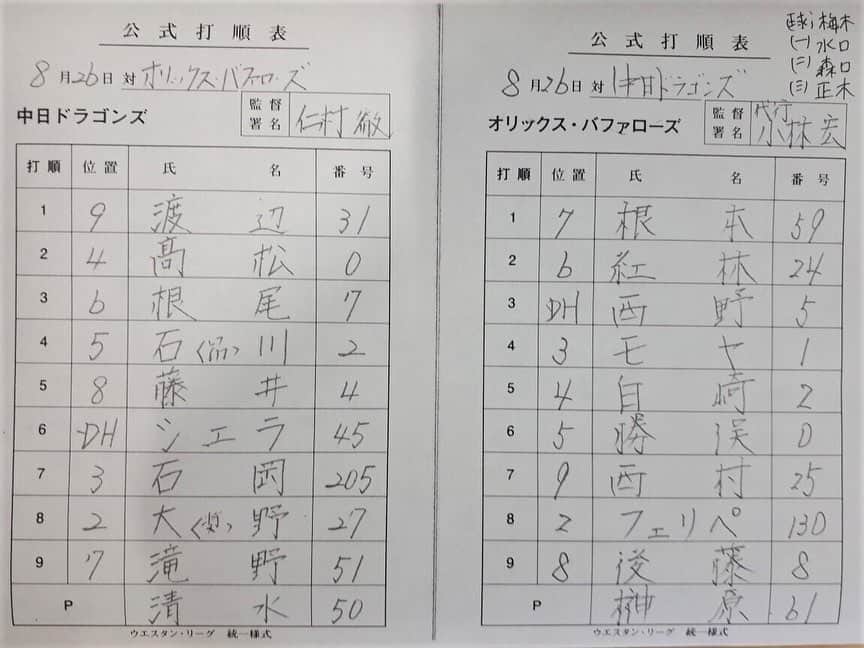 公式打順表
8月26日対オリックス・バファローズ
中日ドラゴンズ 監督署名 仁村徹
打順 位置 氏名 番号
1 9 渡辺 31
2 4 高松 0
3 6 根尾 7
4 5 石〈昂〉川 2
5 8 藤井 4
6 DH シエラ 45
7 3 石岡 205
8 2 大〈奨〉野 27
9 7 滝野 51
P 清水 50
ウエスタン・リーグ 統一様式
(球) 梅木
(一) 水口
(二) 森口
(三) 正木
公式打順表
8月26日対中日ドラゴンズ
オリックス・バファローズ 監督署名 代行 小林宏
打順 位置 氏名 番号
1 7 根本 59
2 6 紅林 24
3 DH 西野 5
4 3 モヤ 1
5 4 白崎 2
6 5 勝俣 0
7 9 西村 25
8 2 フェリペ 130
9 8 後藤 8
P 榊原 61
ウエスタン・リーグ 統一様式